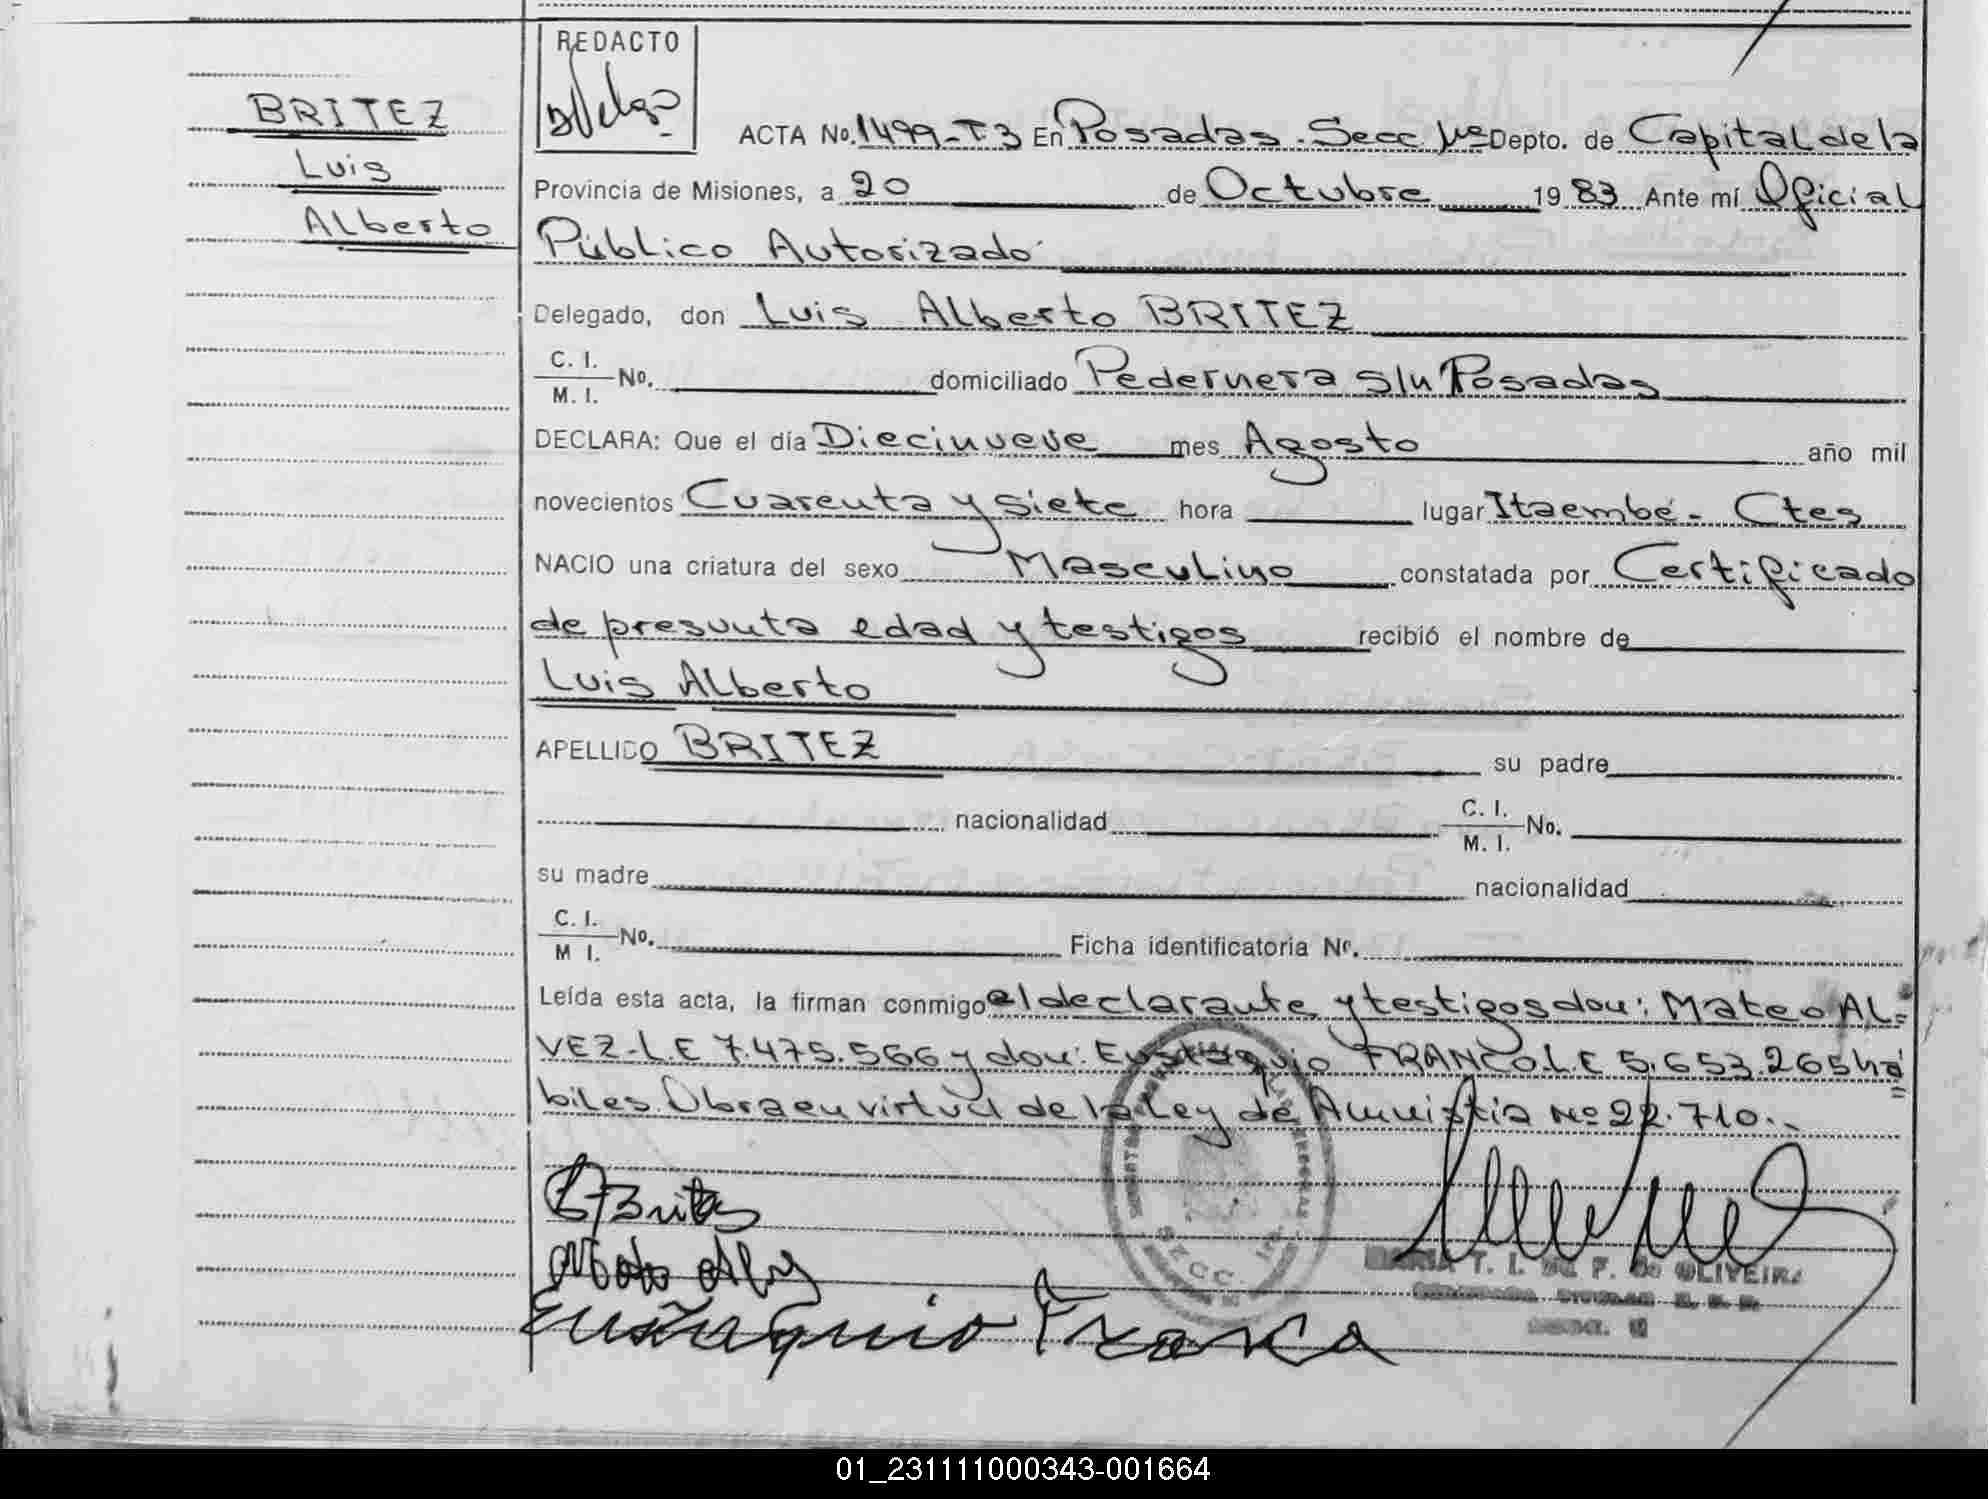 REDACTO
BRITEZ
Luis
Alberto
ACTA No. 1499-T3 En Posadas. Secc. 1ra Depto. de Capital de la
Provincia de Misiones, a 20 de Octubre 1983 Ante mí Oficial
Público Autorizado
Delegado, don Luis Alberto BRITEZ
C. I.
M. I. No. domiciliado Pedernera s/n Posadas
DECLARA: Que el día Diecinueve mes Agosto año mil
novecientos Cuarenta y siete hora lugar Itaembé - Ctes
NACIO una criatura del sexo Masculino constatada por Certificado
de presunta edad y testigos recibió el nombre de
Luis Alberto
APELLIDO BRITEZ su padre
nacionalidad C. I.
M. I. No.
su madre nacionalidad
C. I.
M I. No. Ficha identificatoria Nº.
Leída esta acta, la firman conmigo el declarante y testigos don: Mateo AL=
VEZ-L.E 7.475.566 y don: Eustaquio FRANCO.L.E 5.653.265 há=
biles. Obra en virtud de la Ley de Amnistia Nº 22.710.-
Eustaquio Franco
SECC. 1ra.
MARIA T. I. DE F. de OLIVEIRA
01_231111000343-001664